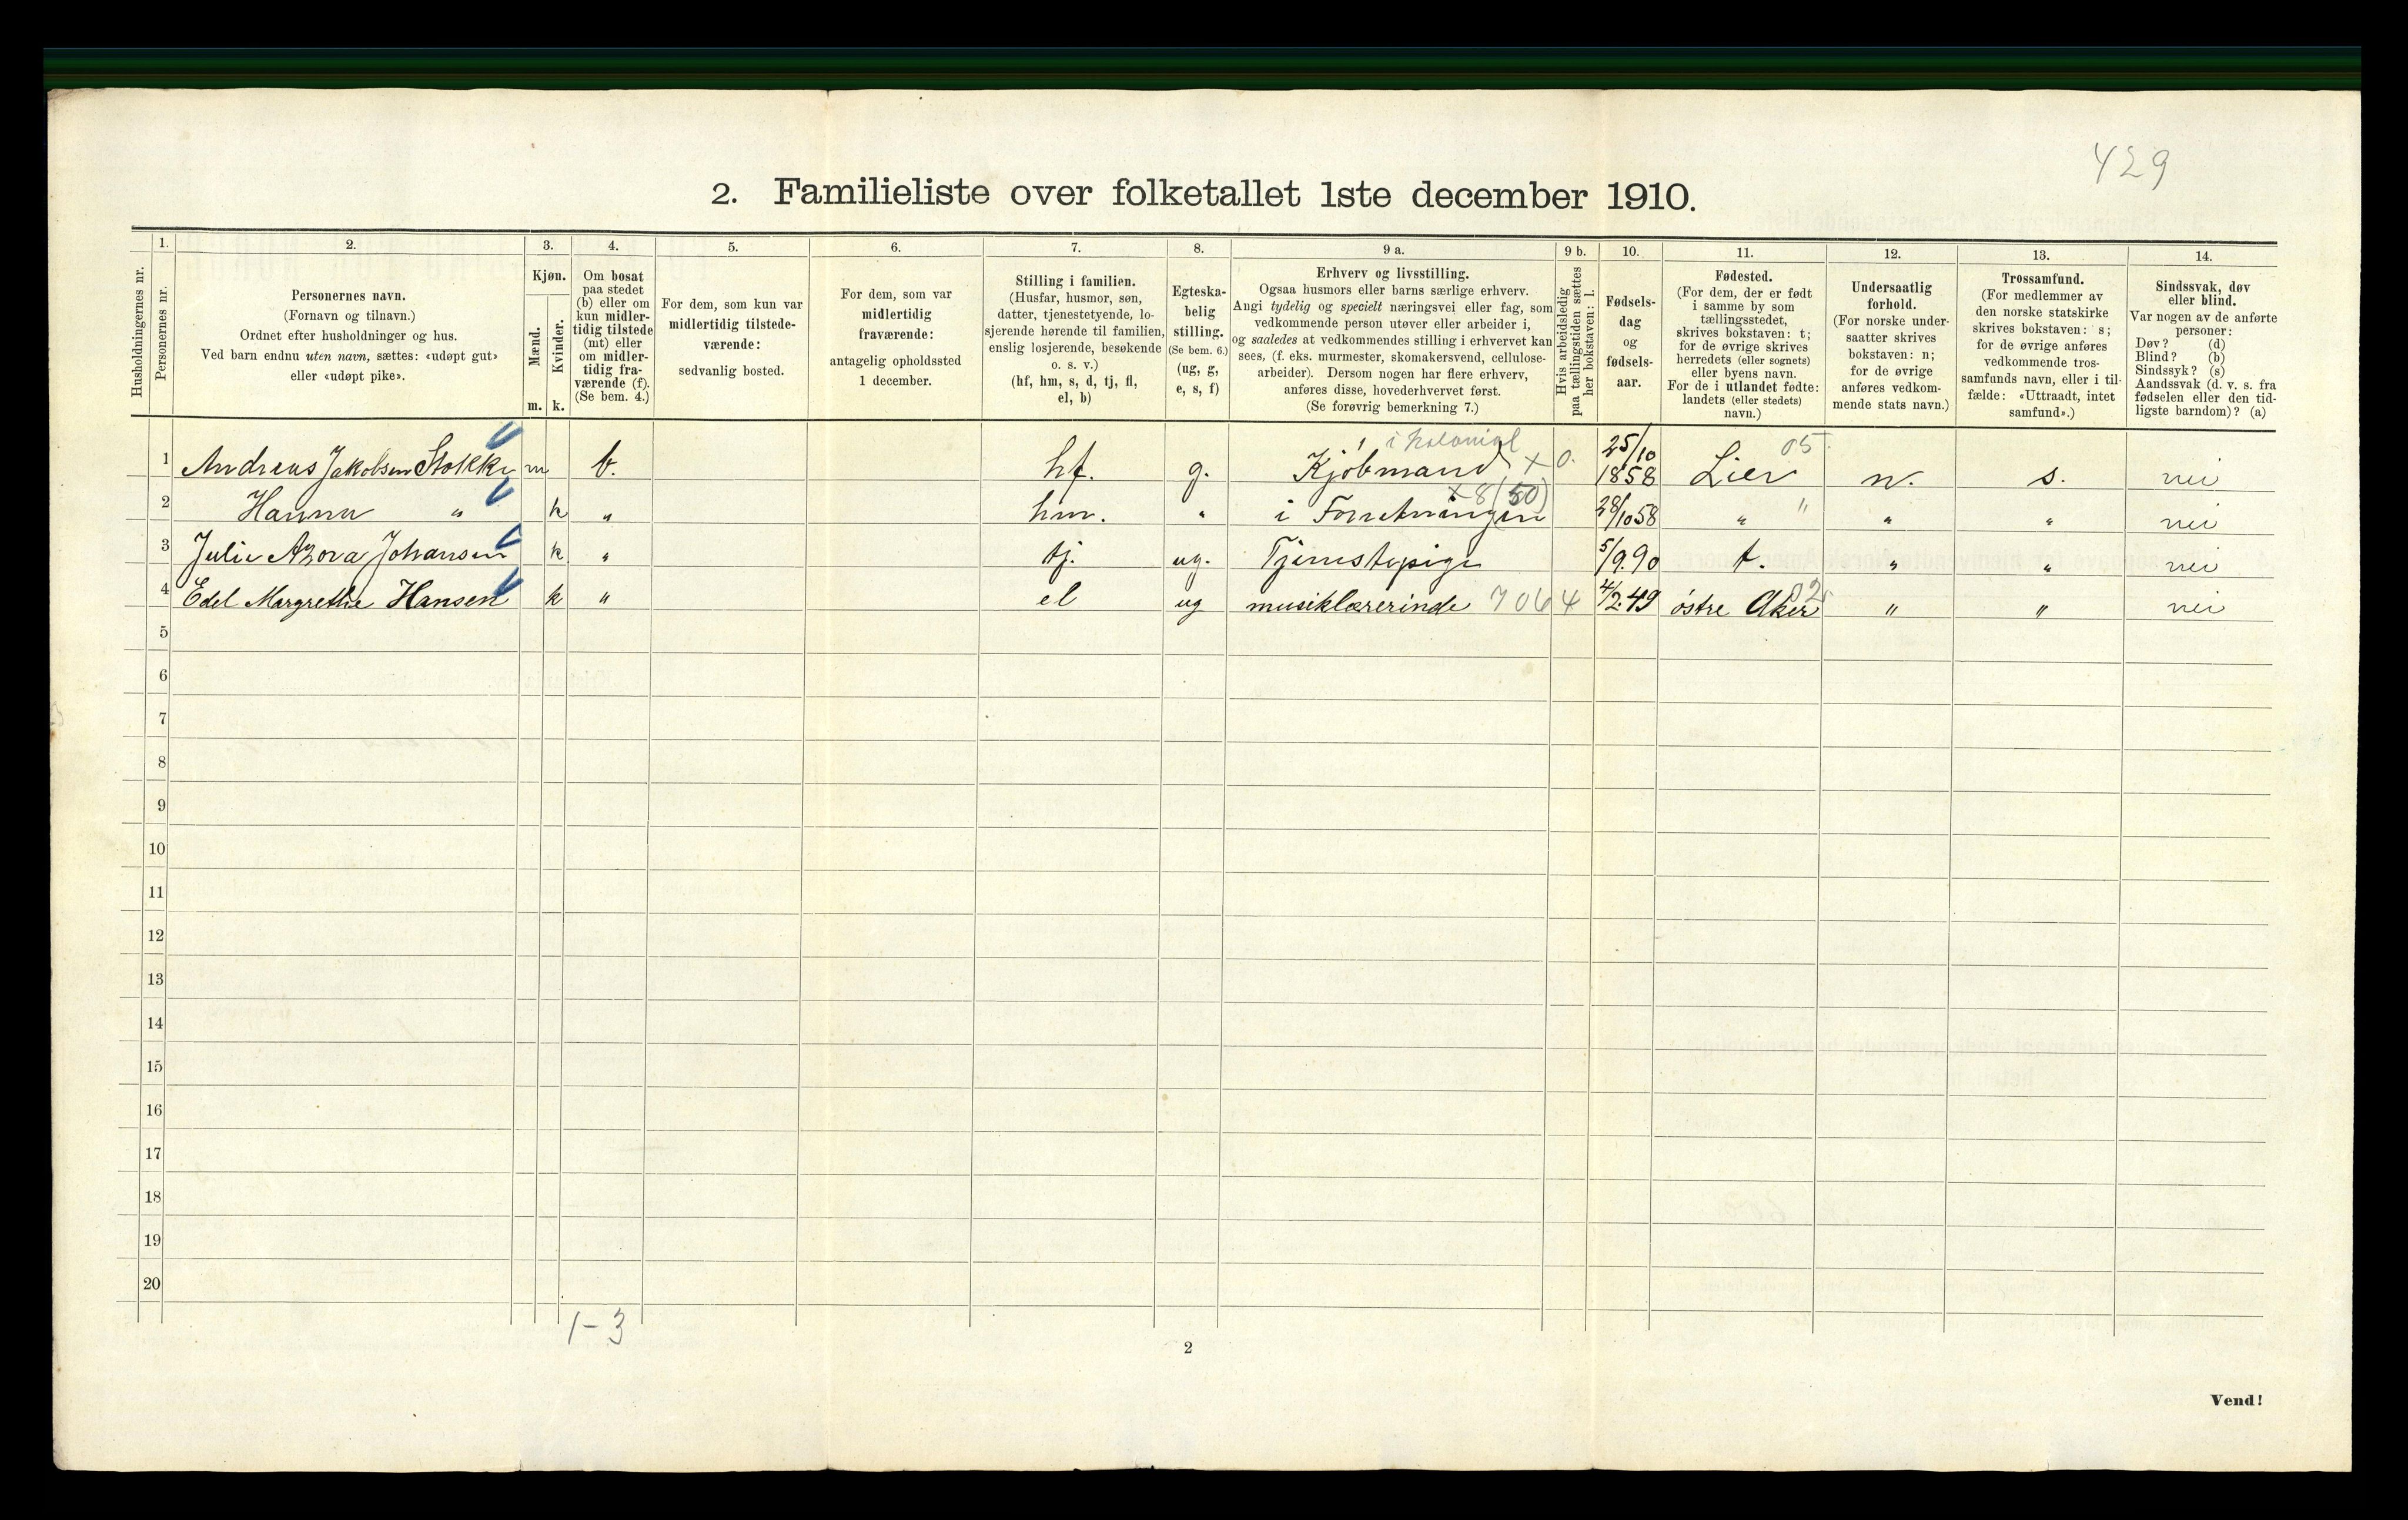 429
2. Familieliste over folketallet 1ste december 1910.
Husholdningernes nr.
1.
Personernes nr.
2.
Personernes navn.
(Fornavn og tilnavn.)
Ordnet efter husholdninger og hus.
Ved barn endnu uten navn, sættes: «udøpt gut»
eller «udøpt pike».
3.
Kjøn.
Mænd.
Kvinder.
m. k.
4.
Om bosat
paa stedet
(b) eller om
kun midler-
tidig tilstede
(mt) eller
om midler-
tidig fra-
værende (f).
(Se bem. 4.)
5.
For dem, som kun var
midlertidig tilstede-
værende:
sedvanlig bosted.
6.
For dem, som var
midlertidig
fraværende:
antagelig opholdssted
1 december.
7.
Stilling i familien.
(Husfar, husmor, søn,
datter, tjenestetyende, lo-
sjerende hørende til familien,
enslig losjerende, besøkende
o. s. v.)
(hf, hm, s, d, tj, fl,
el, b)
8.
Egteska-
belig
stilling.
(Se bem. 6.)
(ug, g,
e, s, f)
9 a.
Erhverv og livsstilling.
Ogsaa husmors eller barns særlige erhverv.
Angi tydelig og specielt næringsvei eller fag, som
vedkommende person utøver eller arbeider i,
og saaledes at vedkommendes stilling i erhvervet kan
sees, (f. eks. murmester, skomakersvend, cellulose-
arbeider). Dersom nogen har flere erhverv,
anføres disse, hovederhvervet først.
(Se forøvrig bemerkning 7.)
9 b.
Hvis arbeidsledig
paa tællingstiden sættes
her bokstaven: l.
10.
Fødsels-
dag
og
fødsels-
aar.
11.
Fødested.
(For dem, der er født
i samme by som
tællingsstedet,
skrives bokstaven: t;
for de øvrige skrives
herredets (eller sognets)
eller byens navn.
For de i utlandet fødte:
landets (eller stedets)
navn.)
12.
Undersaatlig
forhold.
(For norske under-
saatter skrives
bokstaven: n;
for de øvrige
anføres vedkom-
mende stats navn.)
13.
Trossamfund.
(For medlemmer av
den norske statskirke
skrives bokstaven: s;
for de øvrige anføres
vedkommende tros-
samfunds navn, eller i til-
fælde: «Uttraadt, intet
samfund».)
14.
Sindssvak, døv
eller blind.
Var nogen av de anførte
personer:
Døv? (d)
Blind? (b)
Sindssyk? (s)
Aandssvak (d. v. s. fra
fødselen eller den tid-
ligste barndom)? (a)
i kolonial
1 Andreas Jakobsen Stokke m b. hf. g. Kjøbmand x 0. 25/10 1858 Lier 05. n. s. nei
x8(50)
2 Hanna " k " hm. " i Forretningen 28/10 58 " " " " nei
3 Julie Azora Johansen k " tj. ug. Tjenestepige 5/9.90 t. " " nei
4 Edel Margrethe Hansen k " el ug musiklærerinde 7064 4/2.49 østre Aker 02. " " nei
5
6
7
8
9
10
11
12
13
14
15
16
17
18
19
20
1-3
2
Vend!